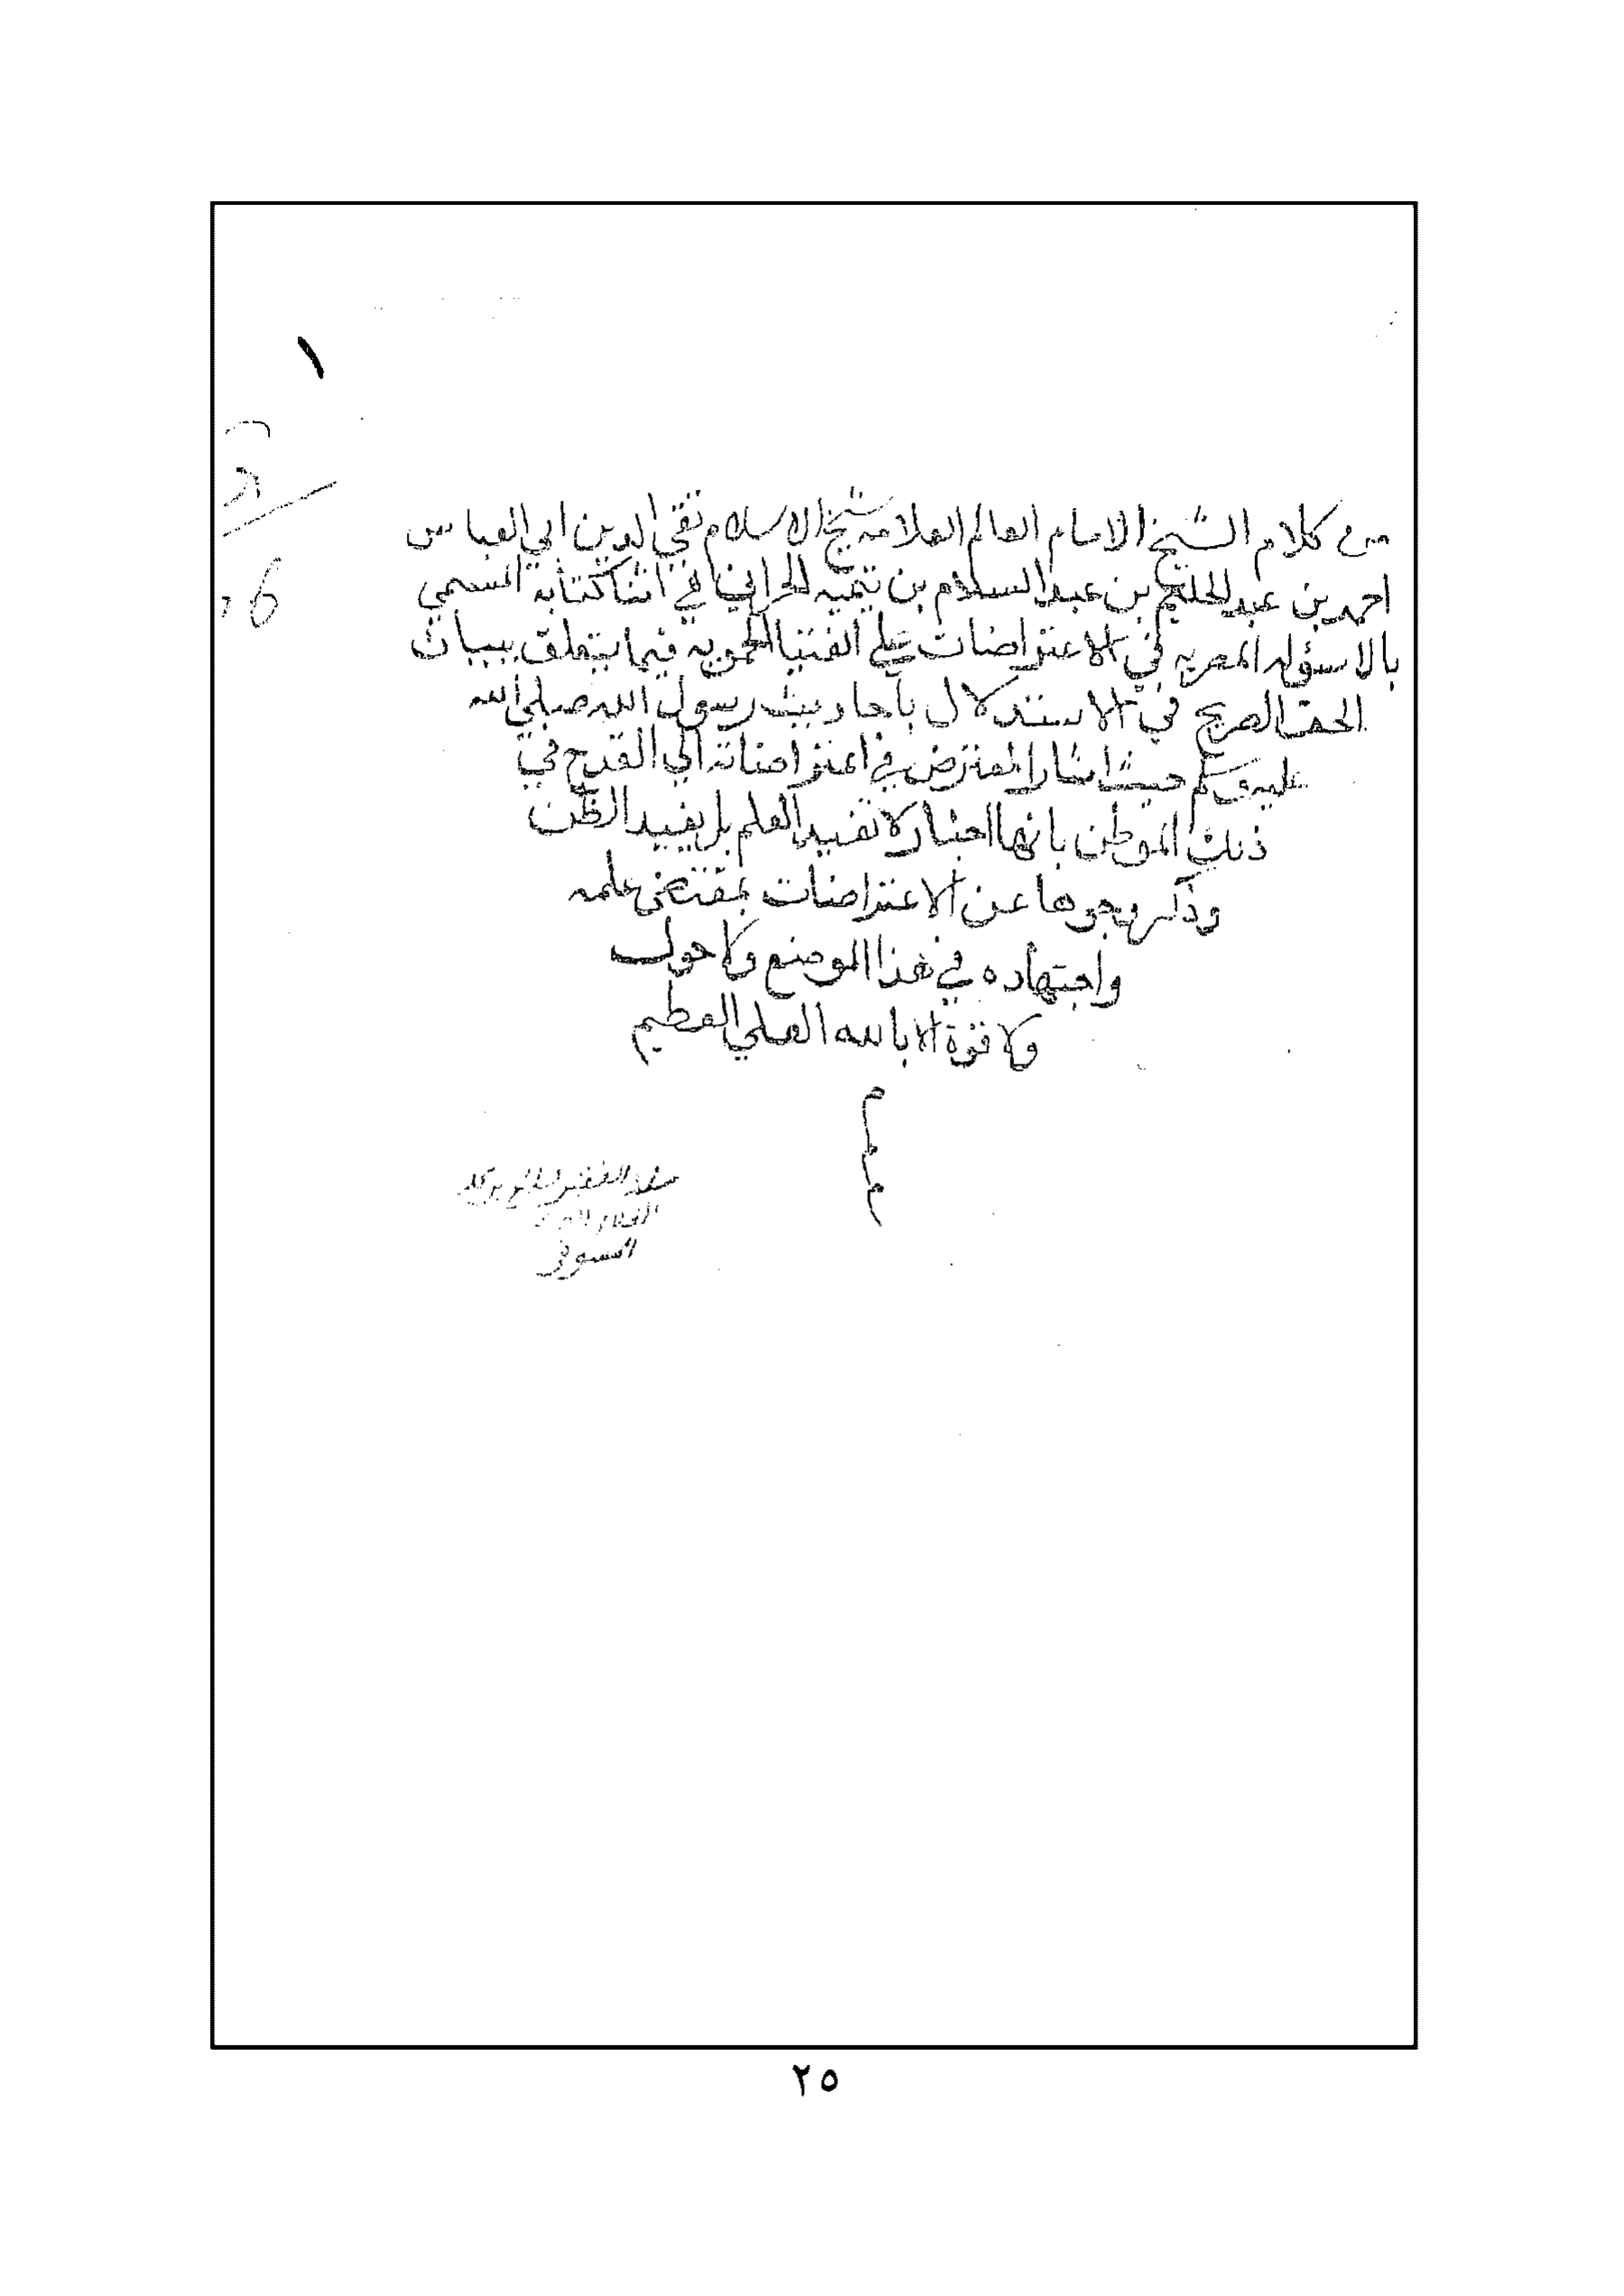 ١
من كلام الشيخ الامام العالم العلامه شيخ الاسلام تقي الدين ابي العباس
احمد بن عبد الحليم بن عبد السلام بن تيميه الحراني في اثنا كتابه المسمي
بالاسؤله المصريه في الاعتراضات علي الفتيا الحمويه فيما يتعلق ببيان
الحق الصريح في الاستدلال بأحاديث رسول الله صلي الله
عليه وسلم حيث اشار المعترض في اعتراضاته الي القدح في
ذلك الموطن بانها اخبار لا تفيد العلم بل يفيد الظن
وذكر وجوها عن الاعتراضات بمقتضى علمه
واجتهاده في هذا الموضع ولا حول
ولا قوة الا بالله العلي العظيم
م
م
٢٥